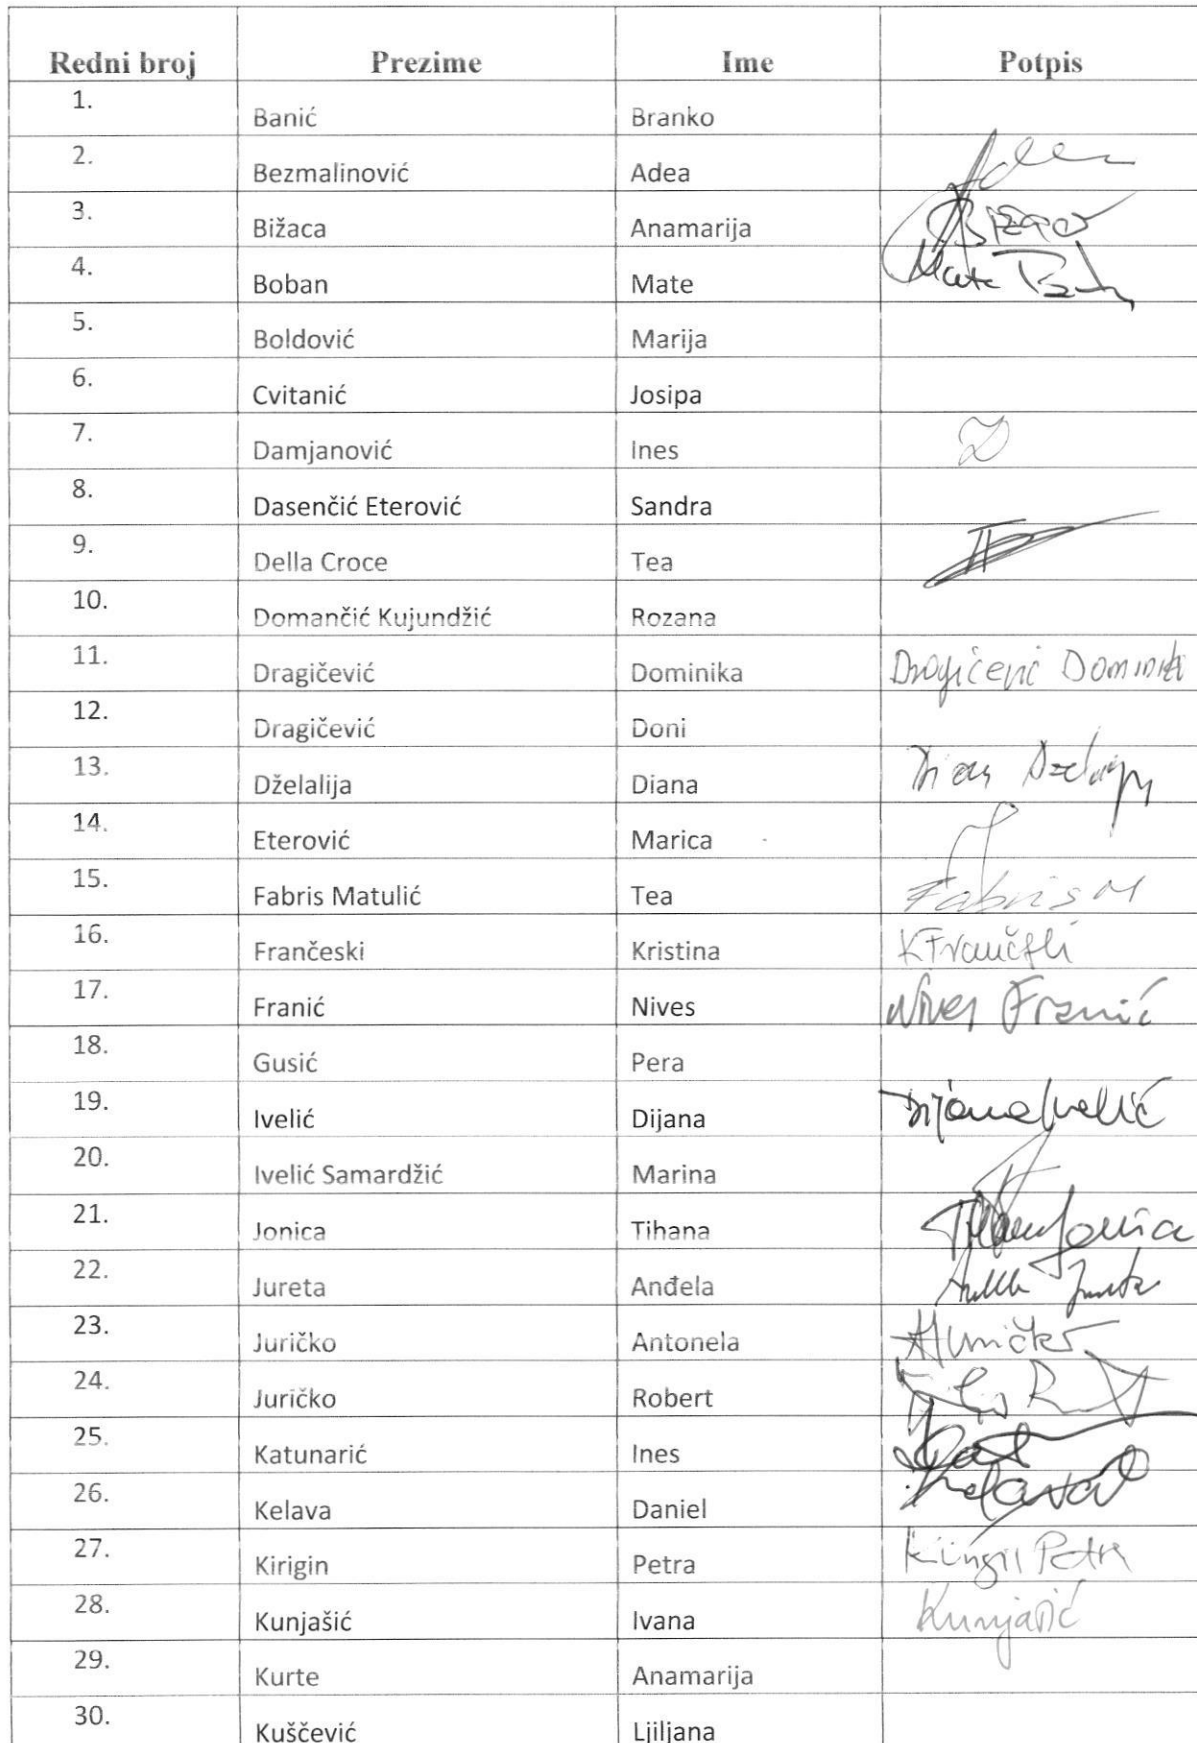 Redni broj Prezime Ime Potpis
1. Banić Branko
2. Bezmalinović Adea Adea
3. Bižaca Anamarija Bižaca
4. Boban Mate Mate
5. Boldović Marija
6. Cvitanić Josipa
7. Damjanović Ines
8. Dasenčić Eterović Sandra
9. Della Croce Tea
10. Domančić Kujundžić Rozana
11. Dragičević Dominika Dragičević Dominika
12. Dragičević Doni
13. Dželalija Diana
14. Eterović Marica
15. Fabris Matulić Tea Fabris M
16. Frančeski Kristina KFrančeski
17. Franić Nives Nives Franić
18. Gusić Pera
19. Ivelić Dijana Dijana Ivelić
20. Ivelić Samardžić Marina
21. Jonica Tihana Tihana Jonica
22. Jureta Anđela
23. Juričko Antonela AJuričko
24. Juričko Robert
25. Katunarić Ines
26. Kelava Daniel Kelava
27. Kirigin Petra Kirigin Petra
28. Kunjašić Ivana Kunjašić
29. Kurte Anamarija
30. Kuščević Ljiljana